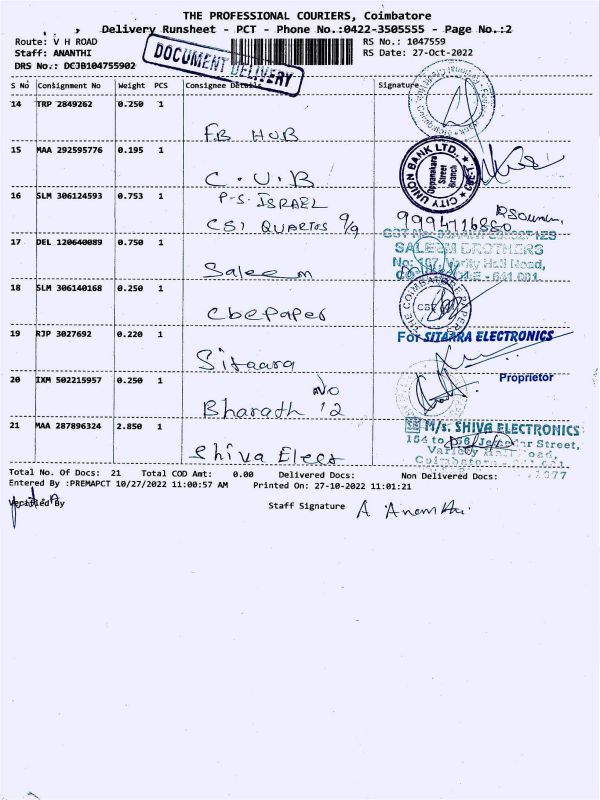 THE PROFESSIONAL COURIERS, Coimbatore
Delivery Runsheet - PCT - Phone No.:0422-3505555 - Page No.:2
Route: V H ROAD
RS No.: 1047559
Staff: ANANTHI
RS Date: 27-Oct-2022
DRS No.: DCJB104755902
DOCUMENT DELIVERY
S No Consignment No Weight PCS Consignee Details Signature
14 TRP 2849262 0.250 1
FB HUB
15 MAA 292595776 0.195 1
C.U.B
CITY UNION BANK LTD.,
Oppanakara
Street
Branch
16 SLM 306124593 0.753 1
P-S. ISRAEL
CSI QUARTOS 9/9
9994716880
17 DEL 120640089 0.750 1
Saleem
SALEEM BROTHERS
18 SLM 306140168 0.250 1
cbepaper
19 RJP 3027692 0.220 1
Sitaara
For SITARRA ELECTRONICS
Proprietor
20 IXM 502215957 0.250 1
No
Bharath 12
21 MAA 287896324 2.850 1
Shiva Elect
M/s. SHIVA ELECTRONICS
Total No. Of Docs: 21 Total COD Amt: 0.00 Delivered Docs: Non Delivered Docs:
Entered By :PREMAPCT 10/27/2022 11:00:57 AM Printed On: 27-10-2022 11:01:21
Verified By
Staff Signature A Ananthi